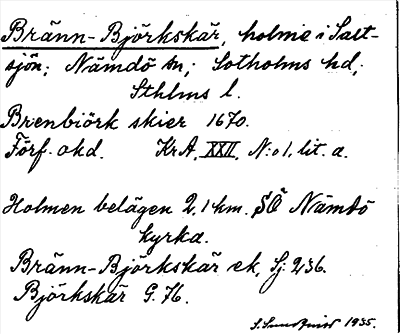 Bränn-Björkskär, holme i Salt-
sjön; Nämdö sn; Sotholms hd;
Sthlms l.
Brenbiörk skier 1670.
Förf. okd. Kr.A, XXII, N:o 1, lit. a.
Holmen belägen 2,1 km. SÖ Nämdö
kyrka.
Bränn-Björkskär ek, Sj. 236.
Björkskär G. 76.
1935.